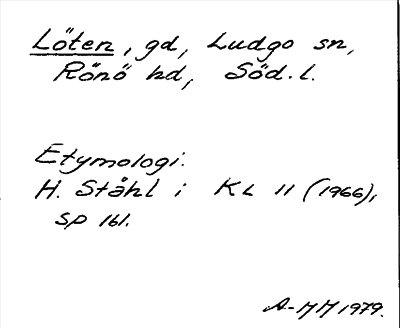 Löten, gd, Ludgo sn,
Rönö hd, Söd.l.
Etymologi:
H. Ståhl i KL 11 (1966),
sp 161.
A-MM 1979.